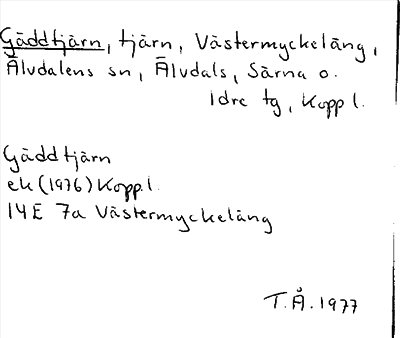 Gäddtjärn, tjärn, Västermyckeläng,
Älvdalens sn, Älvdals, Särna o.
Idre tg, Koppl.
Gäddtjärn
ek (1976) Koppl.
14E 7a Västermyckeläng
T.Å. 1977